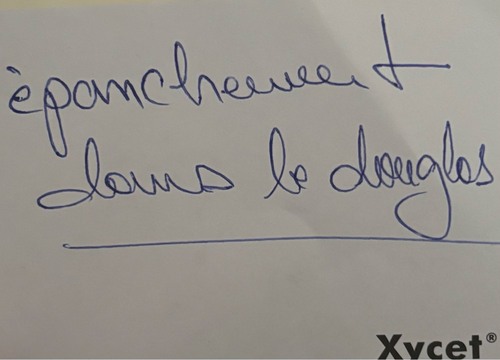 épanchement
dans le douglas
Xycet®